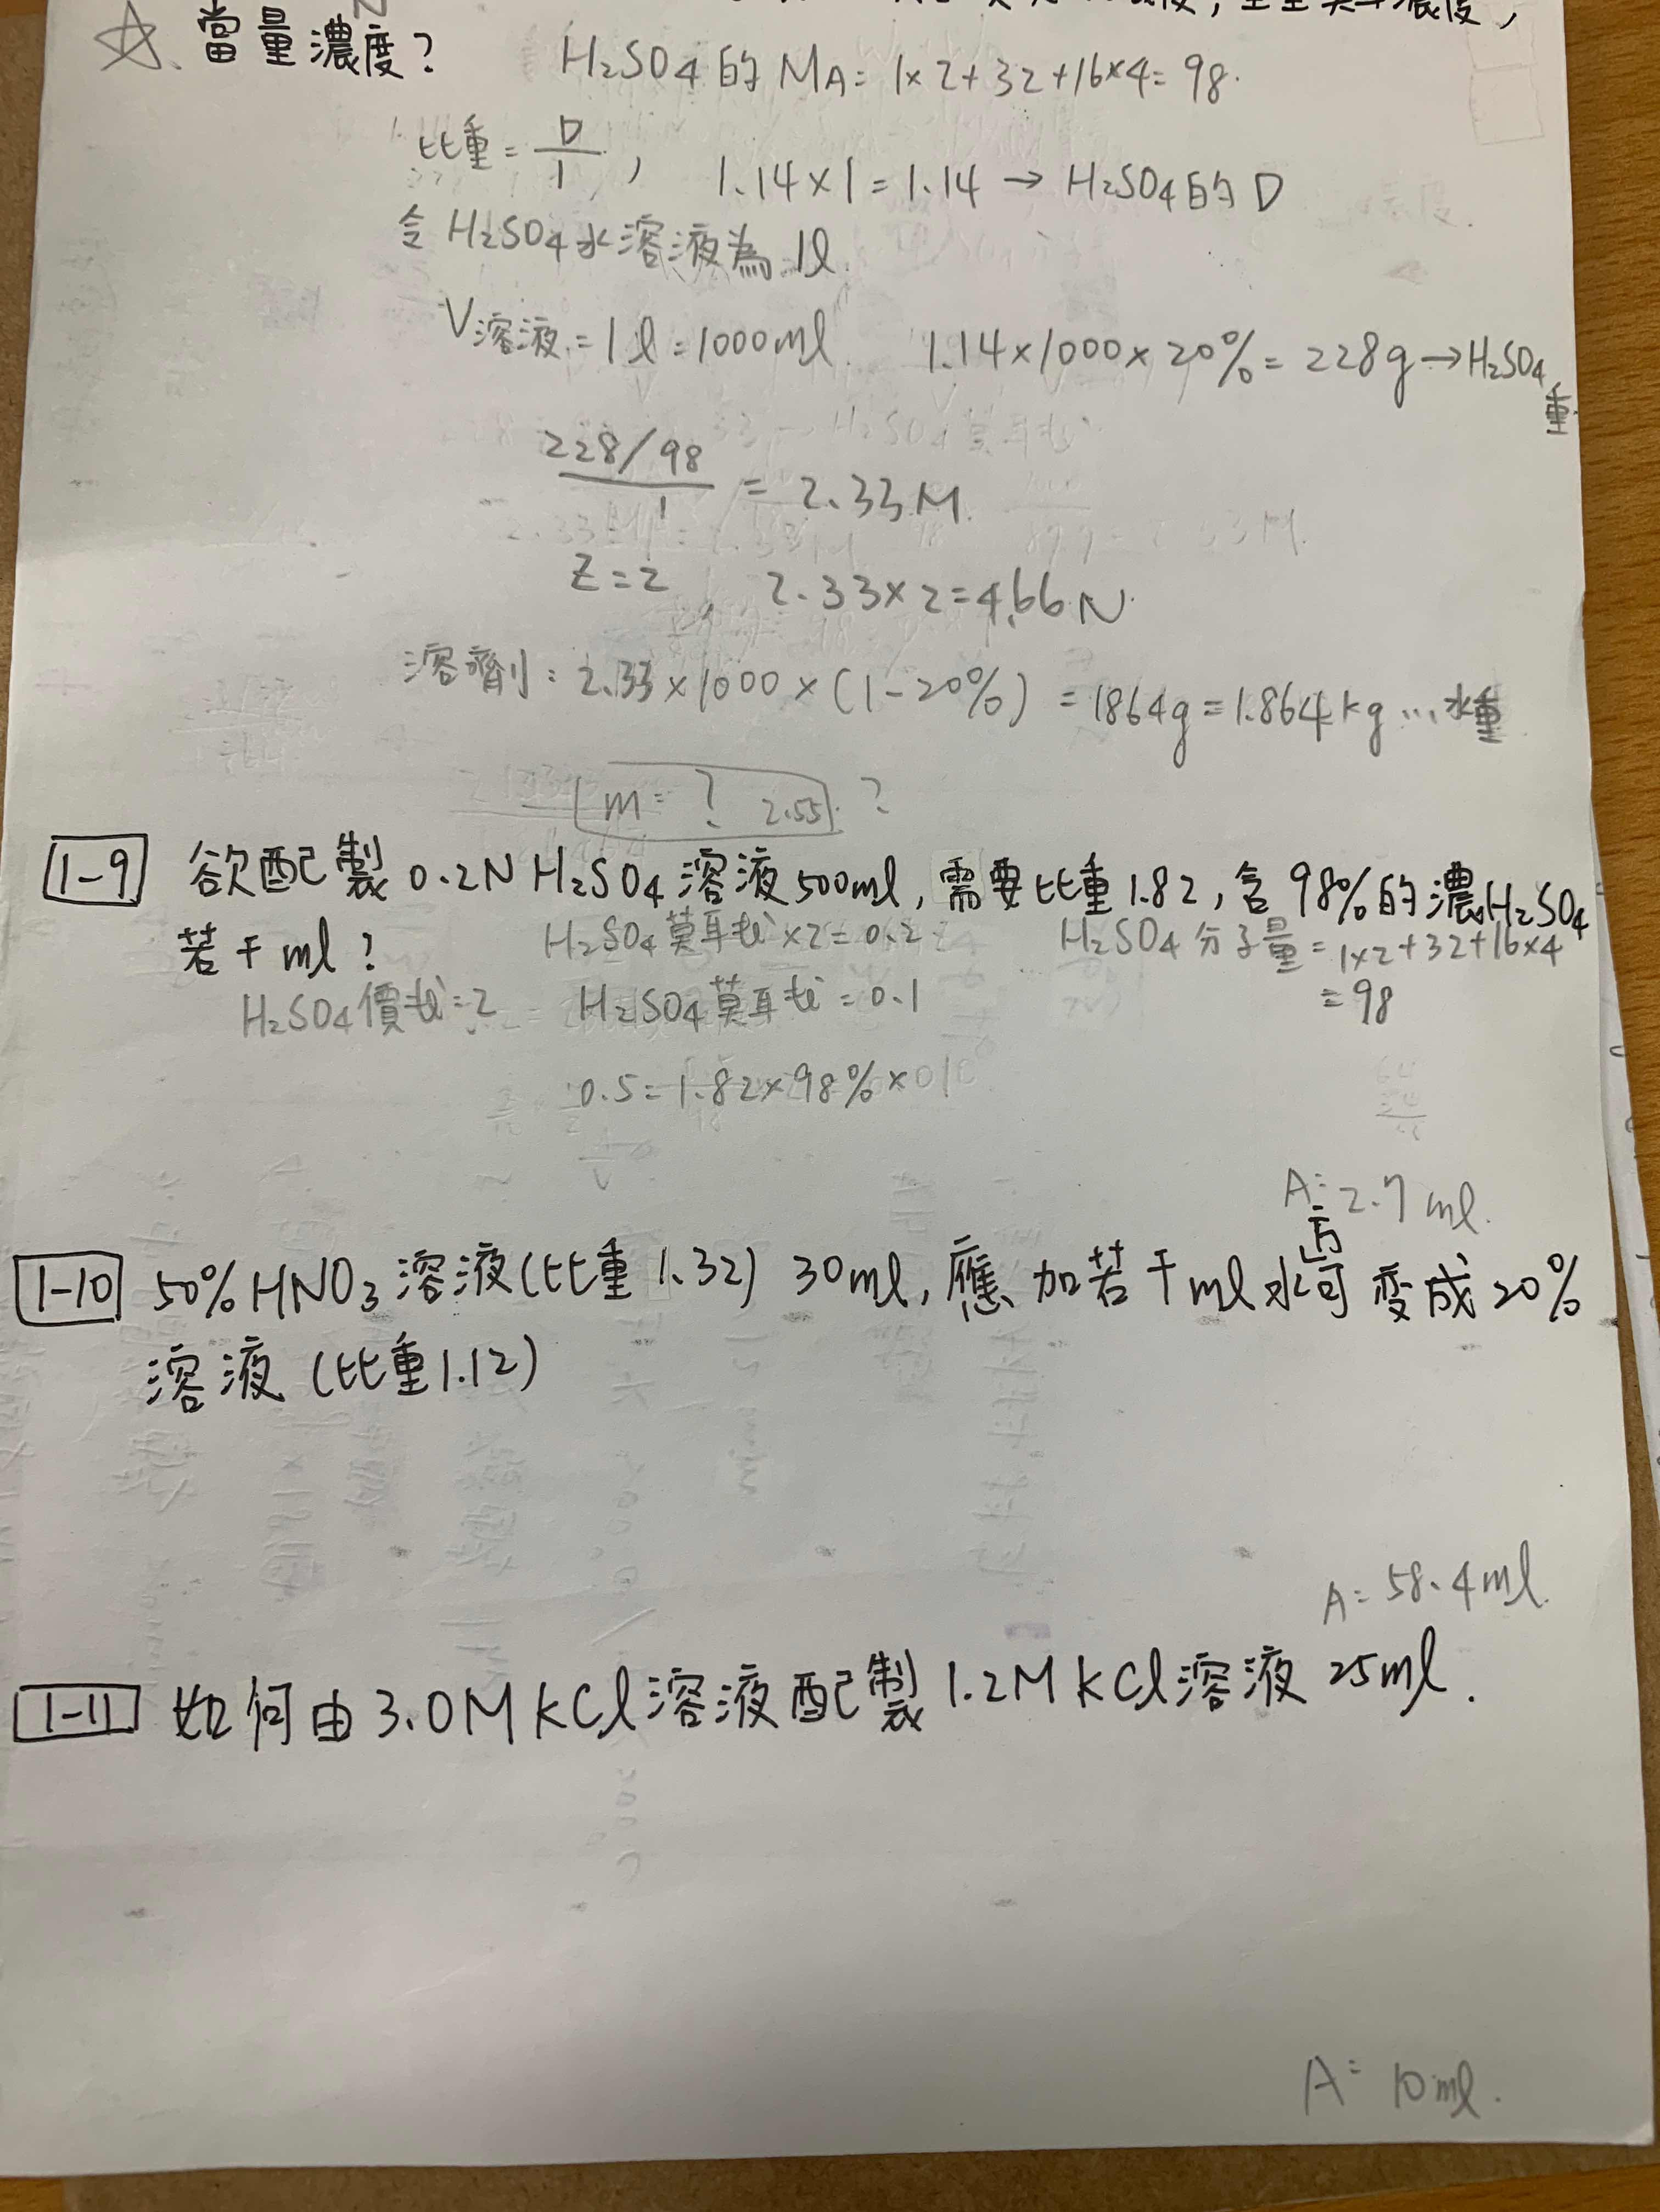 N
度，重量莫耳濃度，
☆、當量濃度？
H₂SO₄的 MA = 1×2+32+16×4=98.
比重 = D/1 ， 1.14×1=1.14 → H₂SO₄的 D
令 H₂SO₄水溶液為 1l.
V溶液 = 1l = 1000ml. 1.14×1000×20% = 228g → H₂SO₄重
(228/98)/1 = 2.33M.
Z=2 , 2.33×2=4.66N.
溶劑: 2.33×1000×(1-20%) = 1864g = 1.864kg …水重
m = ? 2.55. ?
1-9 欲配製 0.2N H₂SO₄溶液500ml, 需要比重1.82, 含98%的濃H₂SO₄
若干ml?
H₂SO₄莫耳數×2=0.2
H₂SO₄分子量=1×2+32+16×4
=98
H₂SO₄價數=2
H₂SO₄莫耳數=0.1
0.5=1.82×98%×
A=2.7ml.
1-10 50% HNO₃溶液(比重1.32) 30ml, 應加若干ml水方可变成20%
溶液 (比重1.12)
A=58.4ml.
1-11 如何由3.0M KCl溶液配製1.2M KCl溶液 25ml.
A=10ml.